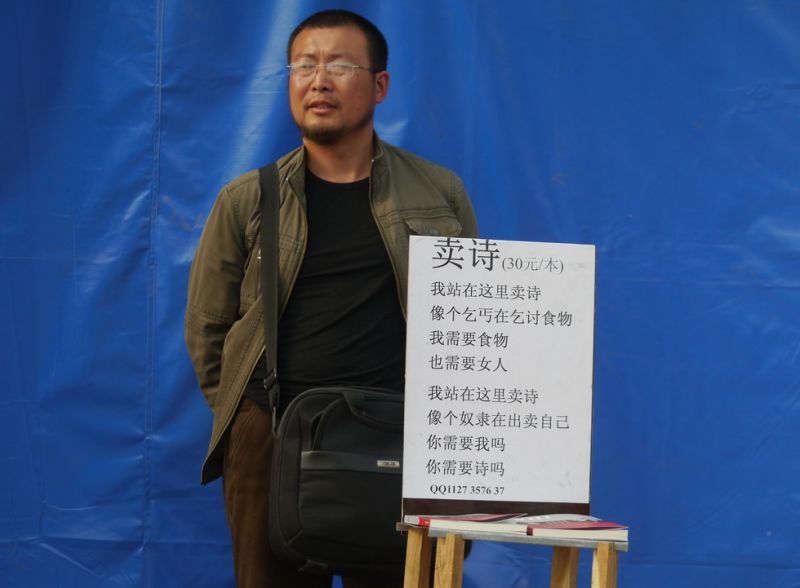 卖诗(30元/本)
我站在这里卖诗
像个乞丐在乞讨食物
我需要食物
也需要女人
我站在这里卖诗
像个奴隶在出卖自己
你需要我吗
你需要诗吗
QQ1127 3576 37